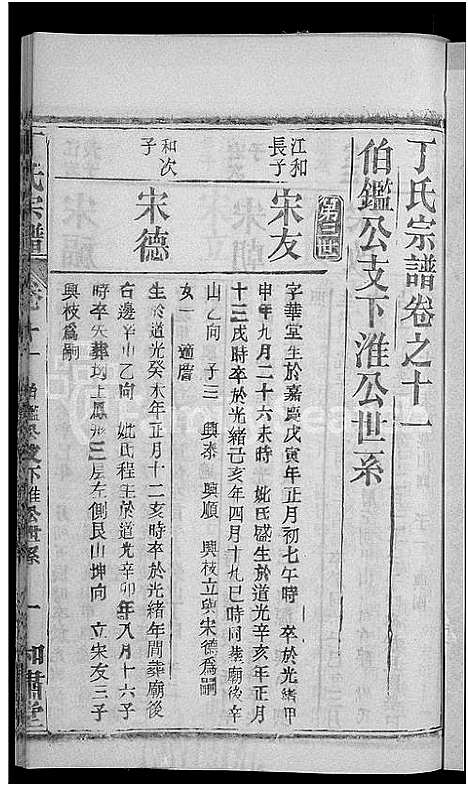 丁氏宗譜卷之十一
伯鑑公支下淮公世系
第三世
江和長子
宋友
字華堂生於嘉慶戊寅年正月初七午時 卒於光緒甲
申年九月二十六未時 妣氏盛生於道光辛亥年正月
十三戌時卒於光緒己亥年四月十九巳時同葬廟後辛
山乙向 子三 興泰 興順 興枝立與宋德爲嗣
女一 適
和次子
宋德
生於道光癸未年正月十二亥時卒於光緒年間葬廟後
右邊辛山乙向 妣氏程生於道光辛卯年八月十六子
時卒 葬 上鳳形三房左側艮山坤向 立宋友三子
興枝爲嗣
丁氏宗譜
卷十一
伯鑑公支下淮公世系
一